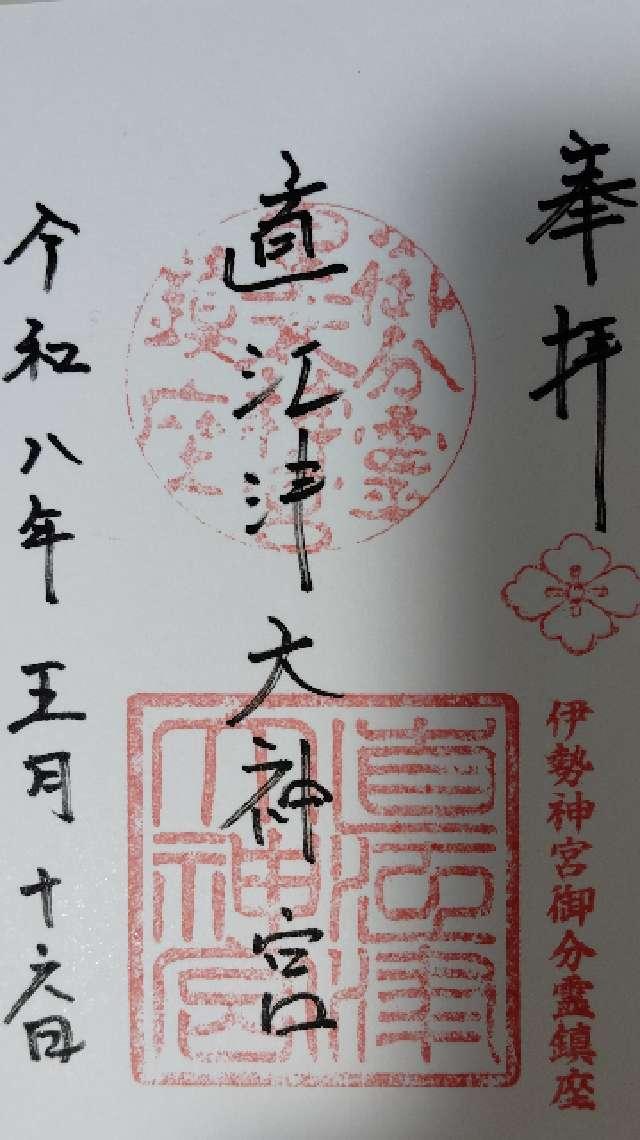 奉拝
伊勢神宮御分霊鎮座
直江津大神宮
御分霊
鎮座
直江津
大神宮
令和八年五月十六日